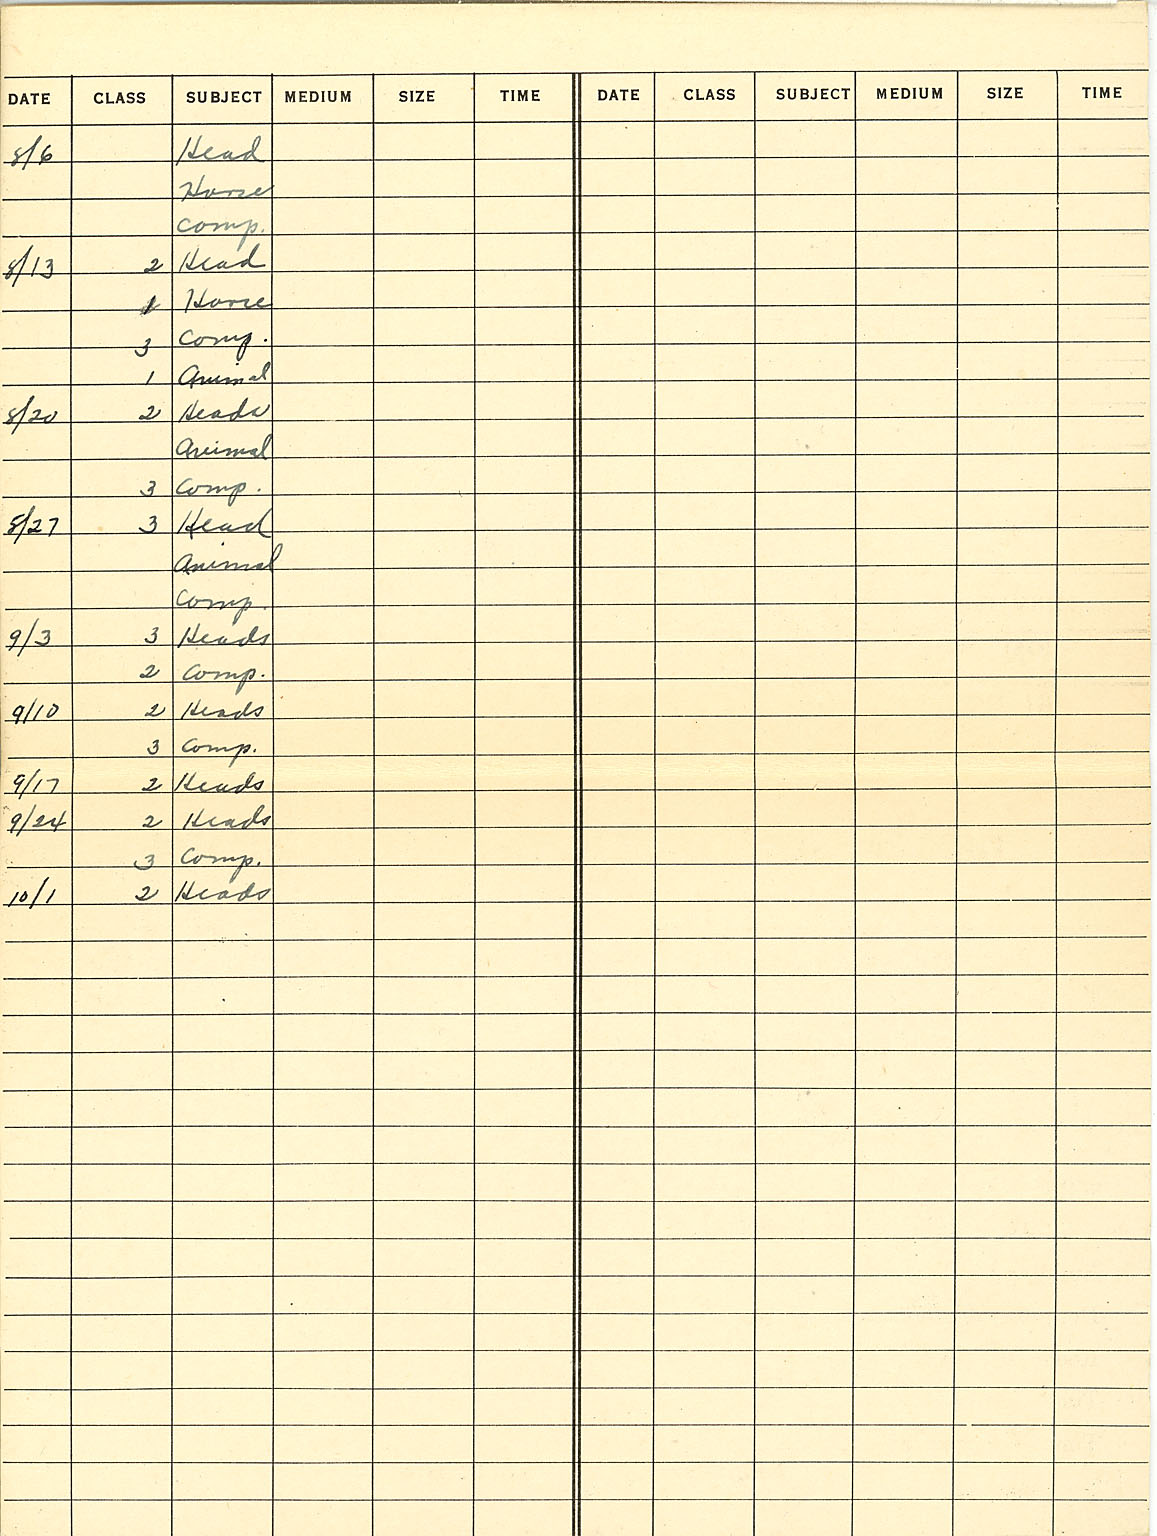 DATE CLASS SUBJECT MEDIUM SIZE TIME DATE CLASS SUBJECT MEDIUM SIZE TIME
8/6 Head
Horse
Comp.
8/13 2 Head
1 Horse
3 Comp.
1 Animal
8/20 2 Heads
Animal
3 Comp.
8/27 3 Head
Animal
Comp.
9/3 3 Heads
2 Comp.
9/10 2 Heads
3 Comp.
9/17 2 Heads
9/24 2 Heads
3 Comp.
10/1 2 Heads